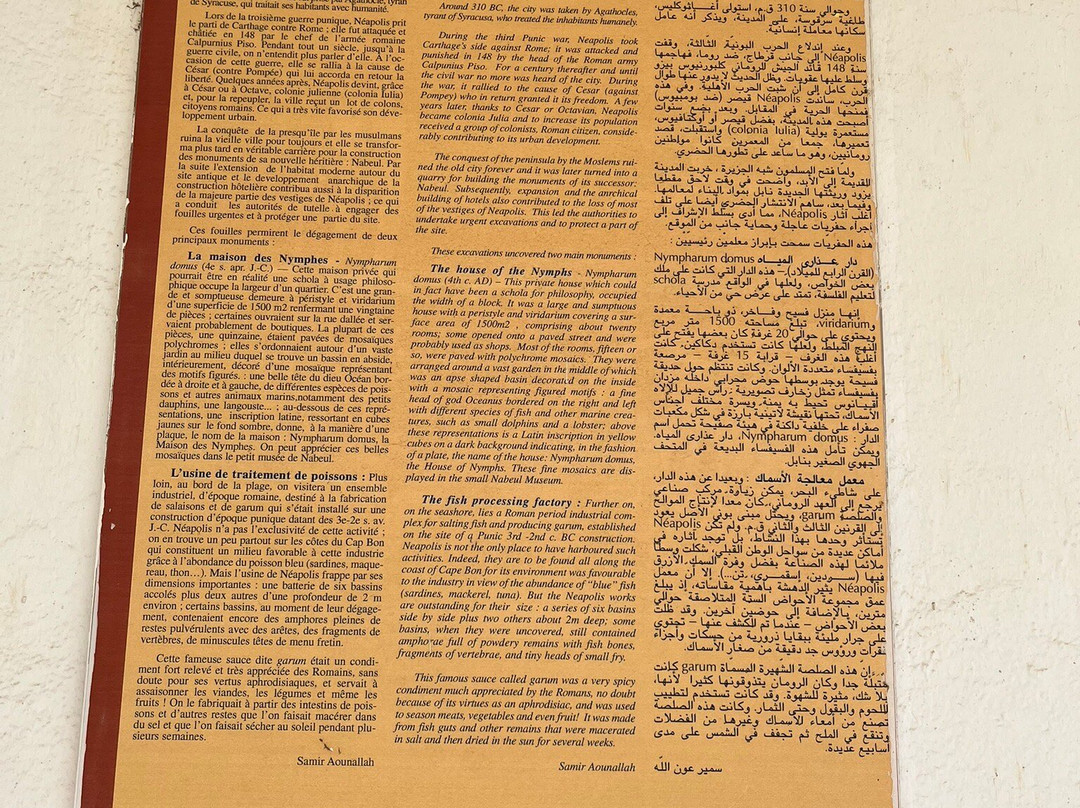 de Syracuse, qui traitait ses habitants avec humanité.
Lors de la troisième guerre punique, Néapolis prit
le parti de Carthage contre Rome ; elle fut attaquée et
châtiée en 148 par le chef de l'armée romaine
Calpurnius Piso. Pendant tout un siècle, jusqu'à la
guerre civile, on n'entendit plus parler d'elle. A l'oc-
casion de cette guerre, elle se rallia à la cause de
César (contre Pompée) qui lui accorda en retour la
liberté. Quelques années après, Néapolis devint, grâce
à César ou à Octave, colonie julienne (colonia Iulia)
et, pour la repeupler, la ville reçut un lot de colons,
citoyens romains. Ce qui a très vite favorisé son déve-
loppement urbain.
La conquête de la presqu'île par les musulmans
ruina la vieille ville pour toujours et elle se transfor-
ma plus tard en véritable carrière pour la construction
des monuments de sa nouvelle héritière : Nabeul. Par
la suite l'extension de l'habitat moderne autour du
site antique et le developpement anarchique de la
construction hôtelière contribua aussi à la disparition
de la majeure partie des vestiges de Néapolis ; ce qui
a conduit les autorités de tutelle à engager des
fouilles urgentes et à protéger une partie du site.
Ces fouilles permirent le dégagement de deux
principaux monuments :
La maison des Nymphes - Nympharum
domus (4e s. apr. J.-C.) — Cette maison privée qui
pourrait être en réalité une schola à usage philoso-
phique occupe la largeur d'un quartier. C'est une gran
de et somptueuse demeure à péristyle et viridarium
d'une superficie de 1500 m2 renfermant une vingtaine
de pièces ; certaines ouvraient sur la rue dallée et ser-
vaient probablement de boutiques. La plupart de ces
pièces, une quinzaine, étaient pavées de mosaïques
polychromes ; elles s'ordonnaient autour d'un vaste
jardin au milieu duquel se trouve un bassin en abside,
intérieurement, décoré d'une mosaïque représentant
des motifs figurés. : une belle tête du dieu Océan bor-
dée à droite et à gauche, de différentes espèces de pois-
sons et autres animaux marins,notamment des petits
dauphins, une langouste... ; au-dessous de ces repré-
sentations, une inscription latine, ressortant en cubes
jaunes sur le fond sombre, donne, à la manière d'une
plaque, le nom de la maison : Nympharum domus, la
Maison des Nymphes. On peut apprécier ces belles
mosaïques dans le petit musée de Nabeul.
L'usine de traitement de poissons : Plus
loin, au bord de la plage, on visitera un ensemble
industriel, d'époque romaine, destiné à la fabrication
de salaisons et de garum qui s'était installé sur une
construction d'époque punique datant des 3e-2e s. av.
J.-C. Néapolis n'a pas l'exclusivité de cette activité ;
on en trouve un peu partout sur les côtes du Cap Bon
qui constituent un milieu favorable à cette industrie
grâce à l'abondance du poisson bleu (sardines, maque-
reau, thon…). Mais l'usine de Néapolis frappe par ses
dimensions importantes : une batterie de six bassins
accolés plus deux autres d'une profondeur de 2 m
environ ; certains bassins, au moment de leur dégage-
ment, contenaient encore des amphores pleines de
restes pulvérulents avec des arêtes, des fragments de
vertèbres, de minuscules têtes de menu fretin.
Cette fameuse sauce dite garum était un condi-
ment fort relevé et très appréciée des Romains, sans
doute pour ses vertus aphrodisiaques, et servait à
assaisonner les viandes, les légumes et même les
fruits ! On le fabriquait à partir des intestins de pois-
sons et d'autres restes que l'on faisait macérer dans
du sel et que l'on faisait sécher au soleil pendant plu-
sieurs semaines.
Samir Aounallah
Around 310 BC, the city was taken by Agathocles,
tyrant of Syracusa, who treated the inhabitants humanely.
During the third Punic war, Neapolis took
Carthage's side against Rome; it was attacked and
punished in 148 by the head of the Roman army
Calpunius Piso. For a century thereafter and until
the civil war no more was heard of the city. During
the war, it rallied to the cause of Cesar (against
Pompey) who in return granted it its freedom. A few
years later, thanks to Cesar or Octavian, Neapolis
became colonia Julia and to increase its population
received a group of colonists, Roman citizen, conside-
rably contributing to its urban development.
The conquest of the peninsula by the Moslems rui-
ned the old city forever and it was later turned into a
quarry for building the monuments of its successor:
Nabeul. Subsequently, expansion and the anrchical
building of hotels also contributed to the loss of most
of the vestiges of Neapolis. This led the authorities to
undertake urgent excavations and to protect a part of
the site.
These excavations uncovered two main monuments :
The house of the Nymphs - Nympharum
domus (4th c. AD) – This private house which could
in fact have been a schola for philosophy, occupied
the width of a block. It was a large and sumptuous
house with a peristyle and viridarium covering a sur-
face area of 1500m2 , comprising about twenty
rooms; some opened onto a paved street and were
probably used as shops. Most of the rooms, fifteen or
so, were paved with polychrome mosaics. They were
arranged around a vast garden in the middle of which
was an apse shaped basin decorated on the inside
with a mosaic representing figured motifs : a fine
head of god Oceanus bordered on the right and left
with different species of fish and other marine crea-
tures, such as small dolphins and a lobster; above
these representations is a Latin inscription in yellow
cubes on a dark background indicating, in the fashion
of a plate, the name of the house: Nympharum domus,
the House of Nymphs. These fine mosaics are dis-
played in the small Nabeul Museum.
The fish processing factory : Further on,
on the seashore, lies a Roman period industrial com-
plex for salting fish and producing garum, established
on the site of q Punic 3rd -2nd c. BC construction.
Neapolis is not the only place to have harboured such
activities. Indeed, they are to be found all along the
coast of Cape Bon for its environment was favourable
to the industry in view of the abundance of "blue" fish
(sardines, mackerel, tuna). But the Neapolis works
are outstanding for their size : a series of six basins
side by side plus two others about 2m deep; some
basins, when they were uncovered, still contained
amphorae full of powdery remains with fish bones,
fragments of vertebrae, and tiny heads of small fry.
This famous sauce called garum was a very spicy
condiment much appreciated by the Romans, no doubt
because of its virtues as an aphrodisiac, and was used
to season meats, vegetables and even fruit! It was made
from fish guts and other remains that were macerated
in salt and then dried in the sun for several weeks.
Samir Aounallah
وحوالي سنة 310 ق.م، استولى أغـــاثوكليس
طاغية سرقوسة، على المدينة، ويذكر أنه عامل
سكانها معاملة إنسانية.
وعند إندلاع الحرب البونيّة الثّالثة، وقفت
Néapolis إلى جانب قرطاج، ضد روما، فهاجمها
سنة 148 قائد الجيش الروماني كلبورنيوس بيزو
وسلط عليها عقوبات. وظل الحديث لا يدور عنها طوال
قرن كامل إلى أن شبت الحرب الأهلية. وفي هذه
الحرب، ساندت Néapolis قيصر (ضد بومبيوس)
فمنحها الحرية في المقابل. وبعد بضع سنوات
أصبحت هذه المدينة، بفضل قيصر أو أوكتافيوس،
مستعمرة يولية (colonia Iulia) واستقبلت، قصد
تعميرها، جمعا من المعمرين كانوا مواطنين
رومانيين، وهو ما ساعد على تطورها الحضري.
ولما فتح المسلمون شبه الجزيرة، خربت المدينة
القديمة إلى الأبد، وأضحت في وقت لاحق مقطعا
يزود وريثتها الجديدة نابل بمواد البناء لمعالمها.
وفيما بعد، ساهم الانتشار الحضري أيضا على تلف
أغلب آثار Néapolis، مما أدى بسلط الإشراف إلى
إجراء حفريات عاجلة وحماية جانب من الموقع.
هذه الحفريّات سمحت بإبراز معلمين رئيسيين :
دار عــذارى المياه Nympharum domus
(القرن الرابع للميلاد).– هذه الدار التي كانت على ملك
بعض الخواص، ولعلها في الواقع مدرسة schola
لتعليم الفلسفة، تمتد على عرض حي من الأحياء.
إنها منزل فسيح وفــاخر، ذو باحـــة معمدة
وviridarium، تبلغ مساحته 1500 متر مربع
ويحتوي على حوالي 20 غرفة كان بعضها يفتح على
النهج المبلط، ولعلها كانت تستخدم دكاكين. كانت
أغلب هذه الغرف – قرابة 15 غرفة – مرصعة
بفسيفساء متعددة الألوان. وكانت تنتظم حول حديقة
فسيحة يوجد بوسطها حوض محرابي داخله مزدان
بفسيفساء تمثل زخارف تصويرية : رأس جميل للإلاه
أقيــانوس تحيط به يمنة ويسرة مختلف أجناس
الأسماك، تحتها نقيشة لاتينية بارزة في شكل مكعبات
صفراء على خلفية داكنة في هيئة صفيحة تحمل أسم
الدار : Nympharum domus، دار عذارى المياه.
ويمكن تأمل هذه الفسيفساء البديعة في المتحف
الجهوي الصغير بنابل.
معمل معالجة الأسماك : وبعيدا عن هذه الدار،
على شاطىء البحر، يمكن زيارة مركب صناعي
يرجع إلى العهد الروماني، كان معدا لإنتاج الموالح
والصلصة garum، ويحتل مبنى بوني الأصل يعود
إلى القرنين الثالث والثاني ق.م. ولم تكن Néapolis
تستأثر وحدها بهذا النشاط، بل توجد آثاره في
أماكن عديدة من سواحل الوطن القبلي، شكلت وسطا
ملائما لهذه الصناعة بفضل وفرة السمك الأزرق
فيها (ســردين، إسقمري، تن...). إلا أن معمل
Néapolis يثير الدهشة بأهمية مقاساته، إذ يبلغ
عمق مجموعة الأحواض الستة المتلاصقة حوالي
مترين، بالإضافة إلى حوضين آخرين. وقد ظلت
بعض الأحواض – عندما تم الكشف عنها – تحتوي
على جرار مليئة ببقايا ذرورية من حسكات وأجزاء
نقرات ورؤوس جد دقيقة من صغار الأسماك.
وإن هذه الصلصة الشهيرة المسماة garum كانت
متبلة جدا وكان الرومان يتذوقونها كثيرا لأنها،
بلا شك، مثيرة للشهوة. وقد كانت تستخدم لتطييب
اللحوم والبقول وحتى الثمار. وكانت هذه الصلصة
تصنع من أمعاء الأسماك وغيرها من الفضلات
وتنقع في الملح ثم تجفف في الشمس على مدى
أسابيع عديدة.
سمير عون اللّه